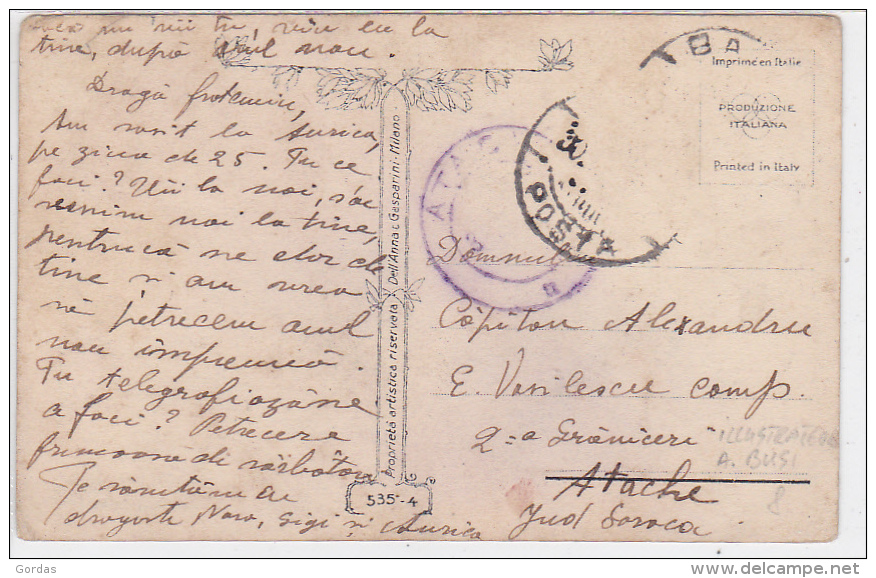 nu vii tu, viu eu la
tine, după Anul nou.
Dragă
Am sosit la Aurica,
pe ziua de 25. Tu ce
faci? Vii la noi, sau
venim noi la tine,
pentrucă ne e dor de
tine și am vrea
să petrecem anul
nou împreună.
Tu telegrafiază-ne
a faci? Petrecere
frumoasă de sărbători
Te sărutăm cu
dragoste Nora, Gigi și Aurica
Proprietà artistica riservata Dell'Anna & Gasparini - Milano
535-4
BA
POSTA
30
ATA
Imprimé en Italie
PRODUZIONE
ITALIANA
Printed in Italy
Domnului
Căpitan Alexandru
E. Vasilescu comp.
2-a Grăniceri
Atache
Jud Soroca
ILLUSTRATEUR
A. BUSI
8
Gordas
delcampe.net